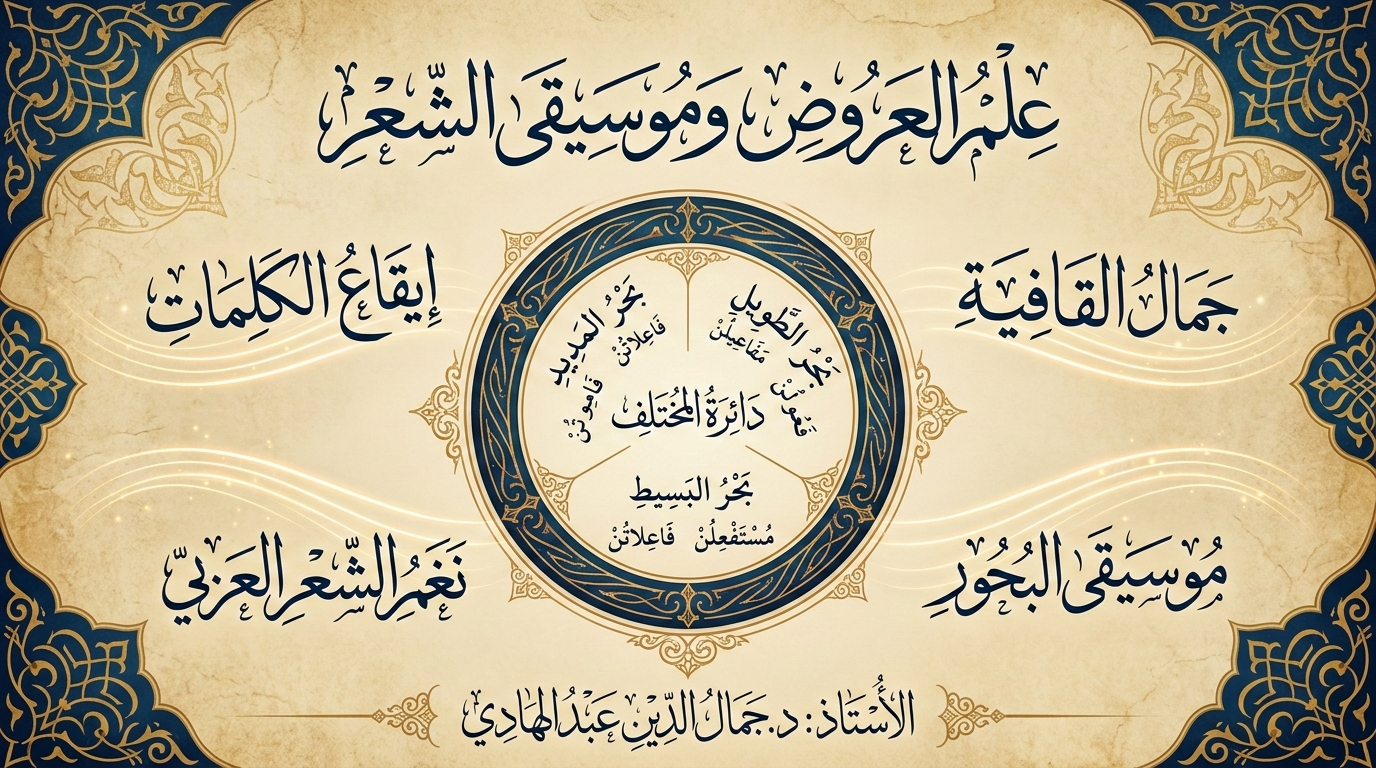 عِلْمُ العَرُوضِ وَمُوسِيقَى الشِّعْرِ
جَمَالُ القَافِيَةِ
إِيقَاعُ الكَلِمَاتِ
بَحْرُ الطَّوِيلِ
مَفَاعِيلُنْ
بَحْرُ المَدِيدِ
فَاعِلَاتُنْ
دَائِرَةُ المُخْتَلِفِ
بَحْرُ البَسِيطِ
مُسْتَفْعِلُنْ فَاعِلَاتُنْ
مُوسِيقَى البُحُورِ
نَغَمُ الشِّعْرِ العَرَبِيِّ
الأُسْتَاذ: د. جَمَالُ الدِّينِ عَبْدُ الهَادِي